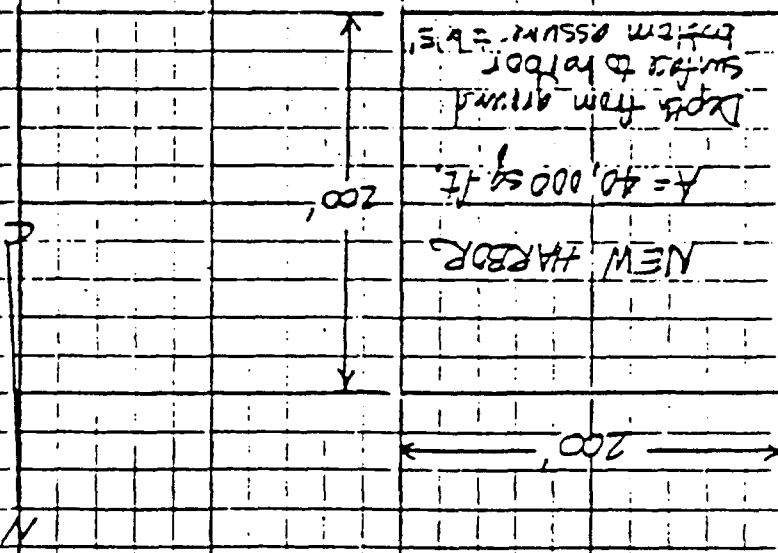 N
200'
NEW HARBOR
200'
A = 40,000 sq. ft.
Depth from ground
surface to harbor
bottom assume =